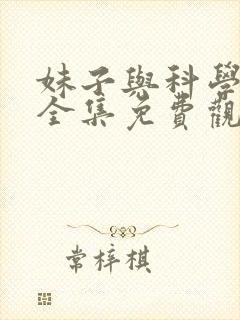 妹子與科學
全集免費觀
常梓棋